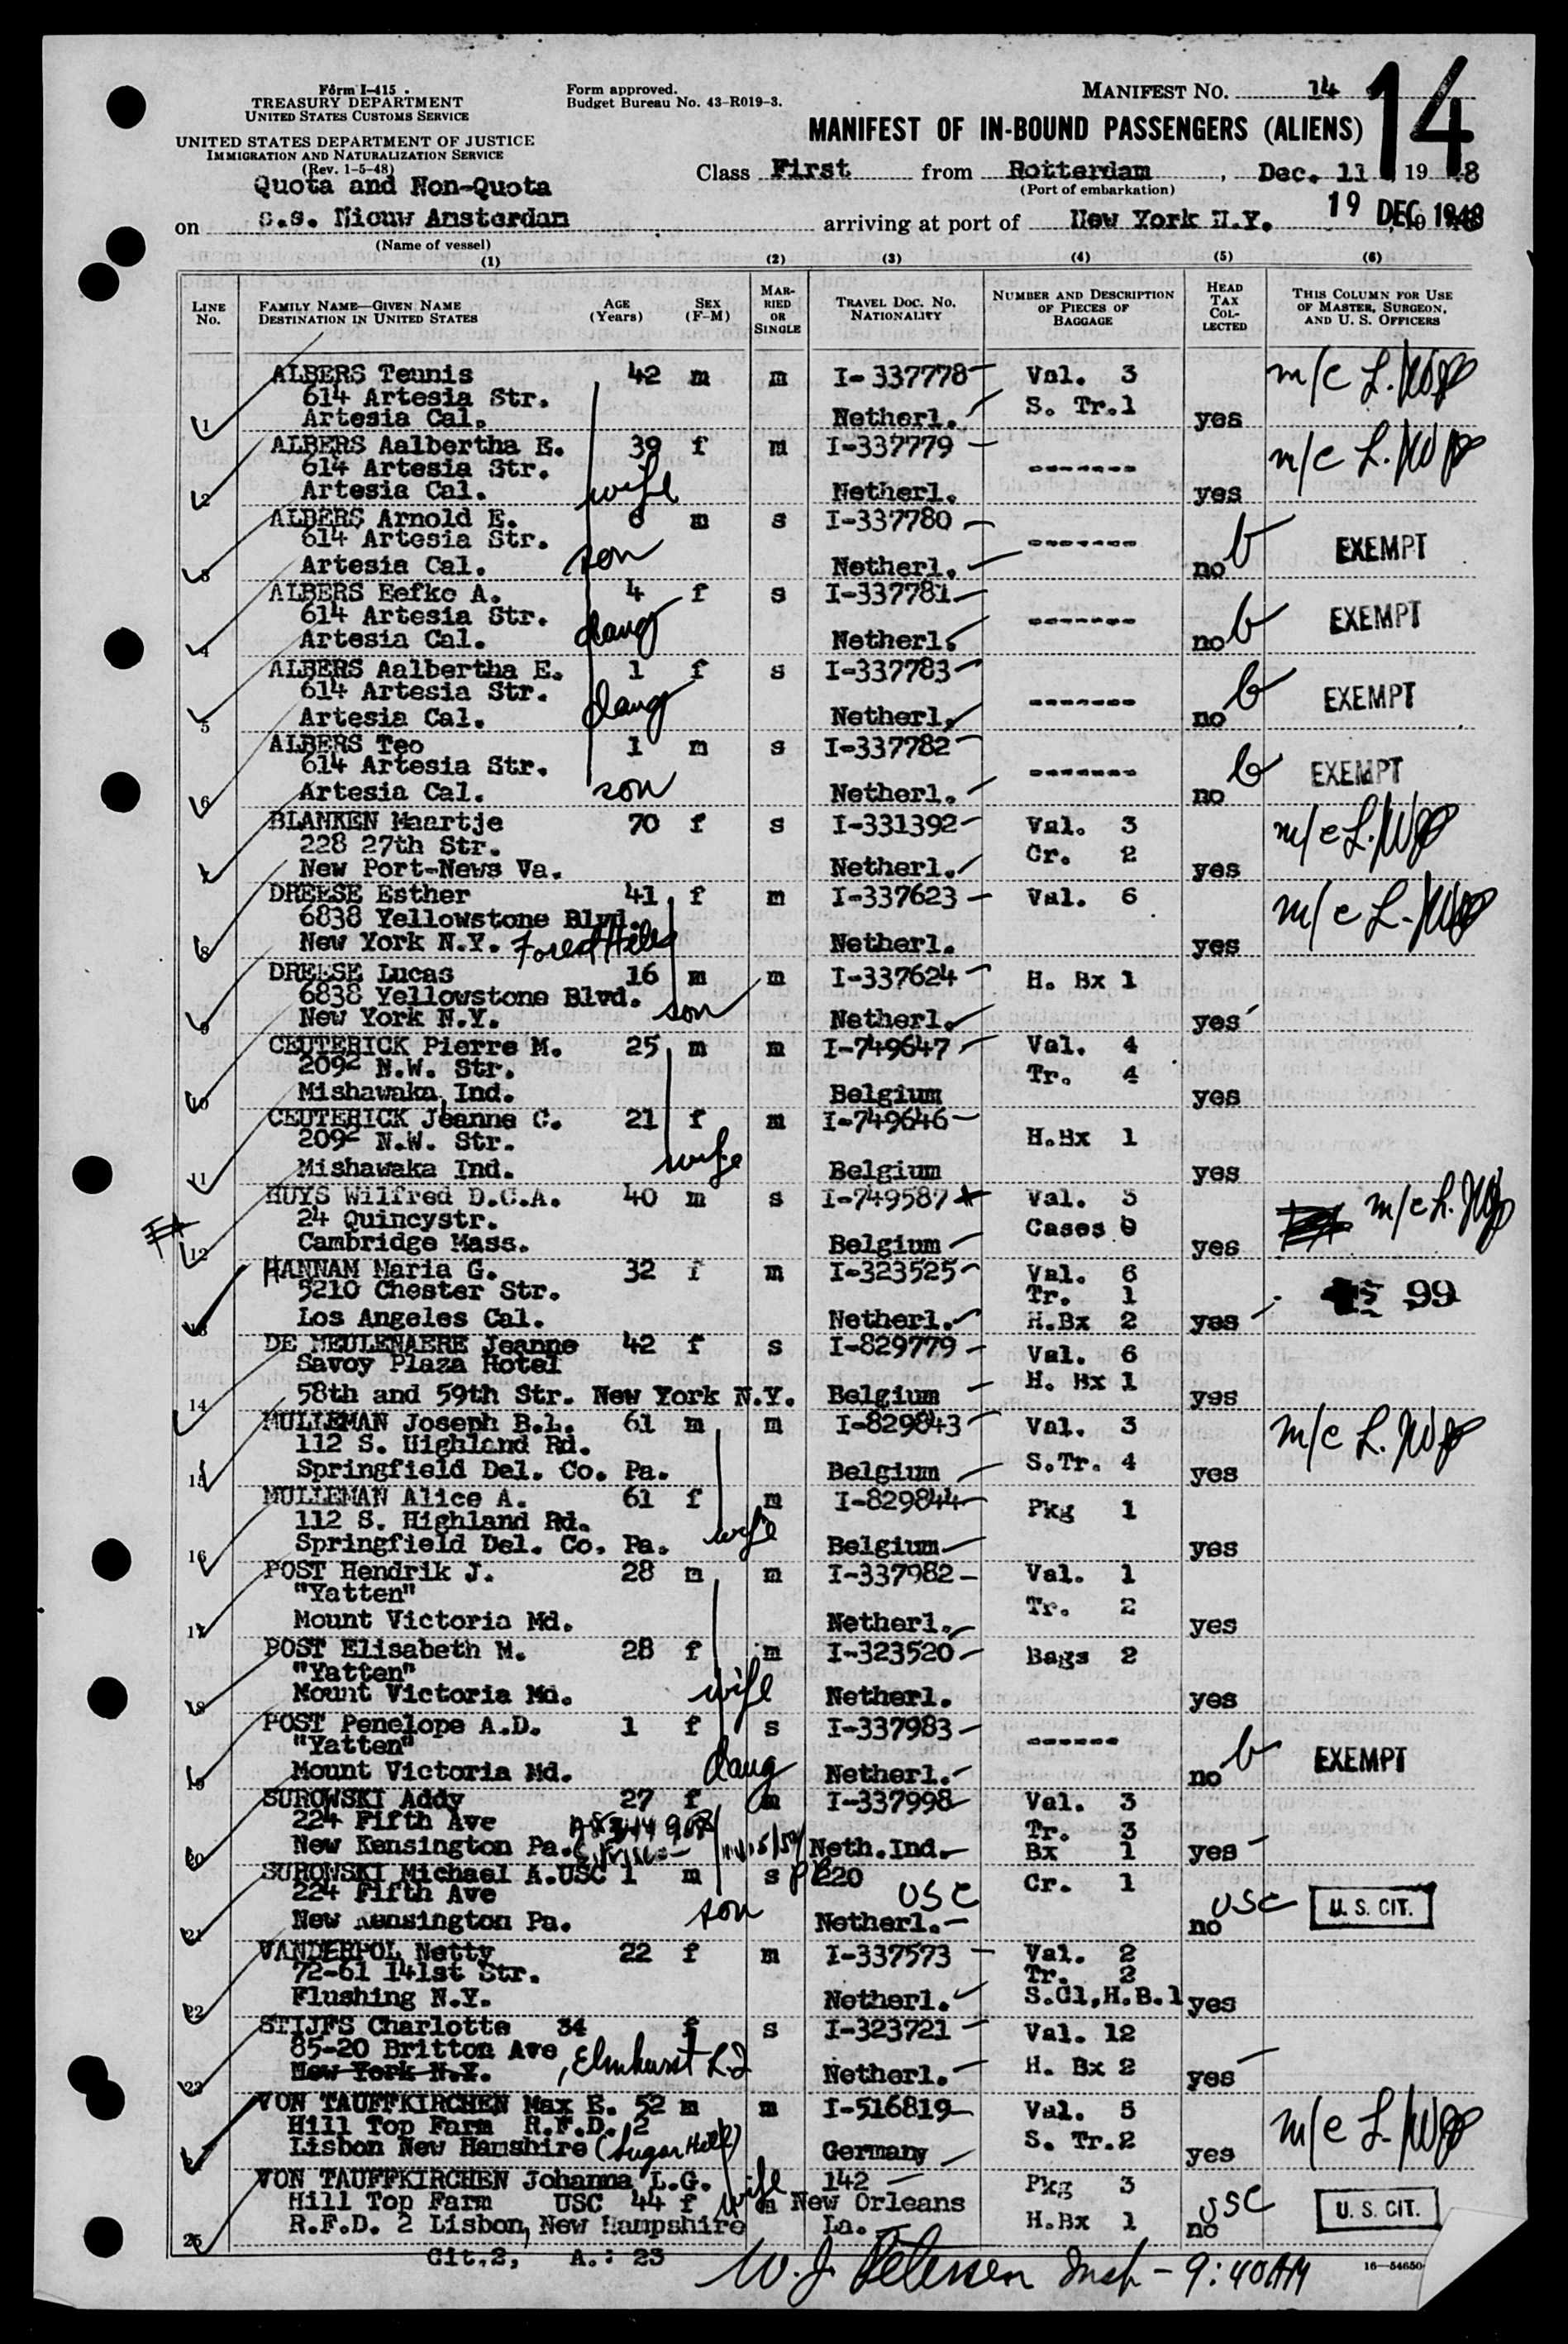 Form I-415
TREASURY DEPARTMENT
UNITED STATES CUSTOMS SERVICE
UNITED STATES DEPARTMENT OF JUSTICE
IMMIGRATION AND NATURALIZATION SERVICE
(Rev. 1-5-48)
Form approved.
Budget Bureau No. 43-R019-3.
MANIFEST NO. 14
14
MANIFEST OF IN-BOUND PASSENGERS (ALIENS)
Class First from Rotterdam, Dec. 11 19 48
(Port of embarkation)
Quota and Non-Quota
on s.s. Nieuw Amsterdam arriving at port of New York N.Y. 19 DEC 1948
(Name of vessel)
(1) (2) (3) (4) (5) (6)
LINE No.
FAMILY NAME—GIVEN NAME
DESTINATION IN UNITED STATES
AGE (Years)
SEX (F-M)
MARRIED OR SINGLE
TRAVEL DOC. NO. NATIONALITY
NUMBER AND DESCRIPTION OF PIECES OF BAGGAGE
HEAD TAX COLLECTED
THIS COLUMN FOR USE OF MASTER, SURGEON, AND U. S. OFFICERS
ALBERS Teunis 42 m m I-337778 Val. 3 m/c
614 Artesia Str. S. Tr.1
1 Artesia Cal. Netherl. yes
ALBERS Aalbertha E. 39 f m I-337779 m/c
614 Artesia Str. -------
2 Artesia Cal. wife Netherl. yes
ALBERS Arnold E. 6 m s I-337780
614 Artesia Str. ------- EXEMPT
3 Artesia Cal. son Netherl. no
ALBERS Eefke A. 4 f s I-337781
614 Artesia Str. ------- EXEMPT
4 Artesia Cal. daug Netherl. no
ALBERS Aalbertha E. 1 f s I-337783
614 Artesia Str. ------- EXEMPT
5 Artesia Cal. daug Netherl. no
ALBERS Teo 1 m s I-337782
614 Artesia Str. ------- EXEMPT
6 Artesia Cal. son Netherl. no
BLANKEN Maartje 70 f s I-331392 Val. 3 m/c
228 27th Str. Cr. 2
New Port-News Va. Netherl. yes
DREESE Esther 41 f m I-337623 Val. 6 m/c
6838 Yellowstone Blvd.
8 New York N.Y. Forest Hills Netherl. yes
DREESE Lucas 16 m m I-337624 H. Bx 1
6838 Yellowstone Blvd.
9 New York N.Y. son Netherl. yes
CEUTERICK Pierre M. 25 m m I-749647 Val. 4
209² N.W. Str. Tr. 4
10 Mishawaka Ind. Belgium yes
CEUTERICK Jeanne C. 21 f m I-749646
209² N.W. Str. H.Bx 1
11 Mishawaka Ind. wife Belgium yes
HUYS Wilfred D.C.A. 40 m s I-749587 Val. 5 m/c
24 Quincystr. Cases 9
12 Cambridge Mass. Belgium yes
HANNAM Maria G. 32 f m I-323525 Val. 6
5210 Chester Str. Tr. 1 99
13 Los Angeles Cal. Netherl. H.Bx 2 yes
DE MEULENAERE Jeanne 42 f s I-829779 Val. 6
Savoy Plaza Hotel H. Bx 1
14 58th and 59th Str. New York N.Y. Belgium yes
MULLEMAN Joseph B.L. 61 m m I-829843 Val. 3 m/c
112 S. Highland Rd. S.Tr. 4
15 Springfield Del. Co. Pa. Belgium yes
MULLEMAN Alice A. 61 f m I-829844 Pkg 1
112 S. Highland Rd.
16 Springfield Del. Co. Pa. wife Belgium yes
POST Hendrik J. 28 m m I-337982 Val. 1
"Yatten" Tr. 2
17 Mount Victoria Md. Netherl. yes
POST Elisabeth M. 28 f m I-323520 Bags 2
"Yatten"
18 Mount Victoria Md. wife Netherl. yes
POST Penelope A.D. 1 f s I-337983
"Yatten" ------ EXEMPT
19 Mount Victoria Md. daug Netherl. no
SUROWSKI Addy 27 f m I-337998 Val. 3
224 Fifth Ave Tr. 3
20 New Kensington Pa. Neth.Ind. Bx 1 yes
SUROWSKI Michael A.USC 1 m s 220 Cr. 1
224 Fifth Ave USC USC U. S. CIT.
21 New Kensington Pa. son Netherl. no
VANDERPOL Netty 22 f m I-337573 Val. 2
72-61 141st Str. Tr. 2
22 Flushing N.Y. Netherl. S.Cl,H.B.1 yes
STIJFS Charlotte 34 f s I-323721 Val. 12
85-20 Britton Ave, Elmhurst L I H. Bx 2
23 New York N.Y. Netherl. yes
VON TAUFFKIRCHEN Max E. 52 m m I-516819 Val. 5 m/c
Hill Top Farm R.F.D. 2 S. Tr.2
Lisbon New Hamshire (Sugar Hill) Germany yes
VON TAUFFKIRCHEN Johanna L.G. wife 142 Pkg 3
Hill Top Farm USC 44 f m New Orleans USC U. S. CIT.
25 R.F.D. 2 Lisbon, New Hampshire La. H.Bx 1 no
Cit.2, A.: 23
W. J. Petersen Insp - 9:40 AM
16—54650